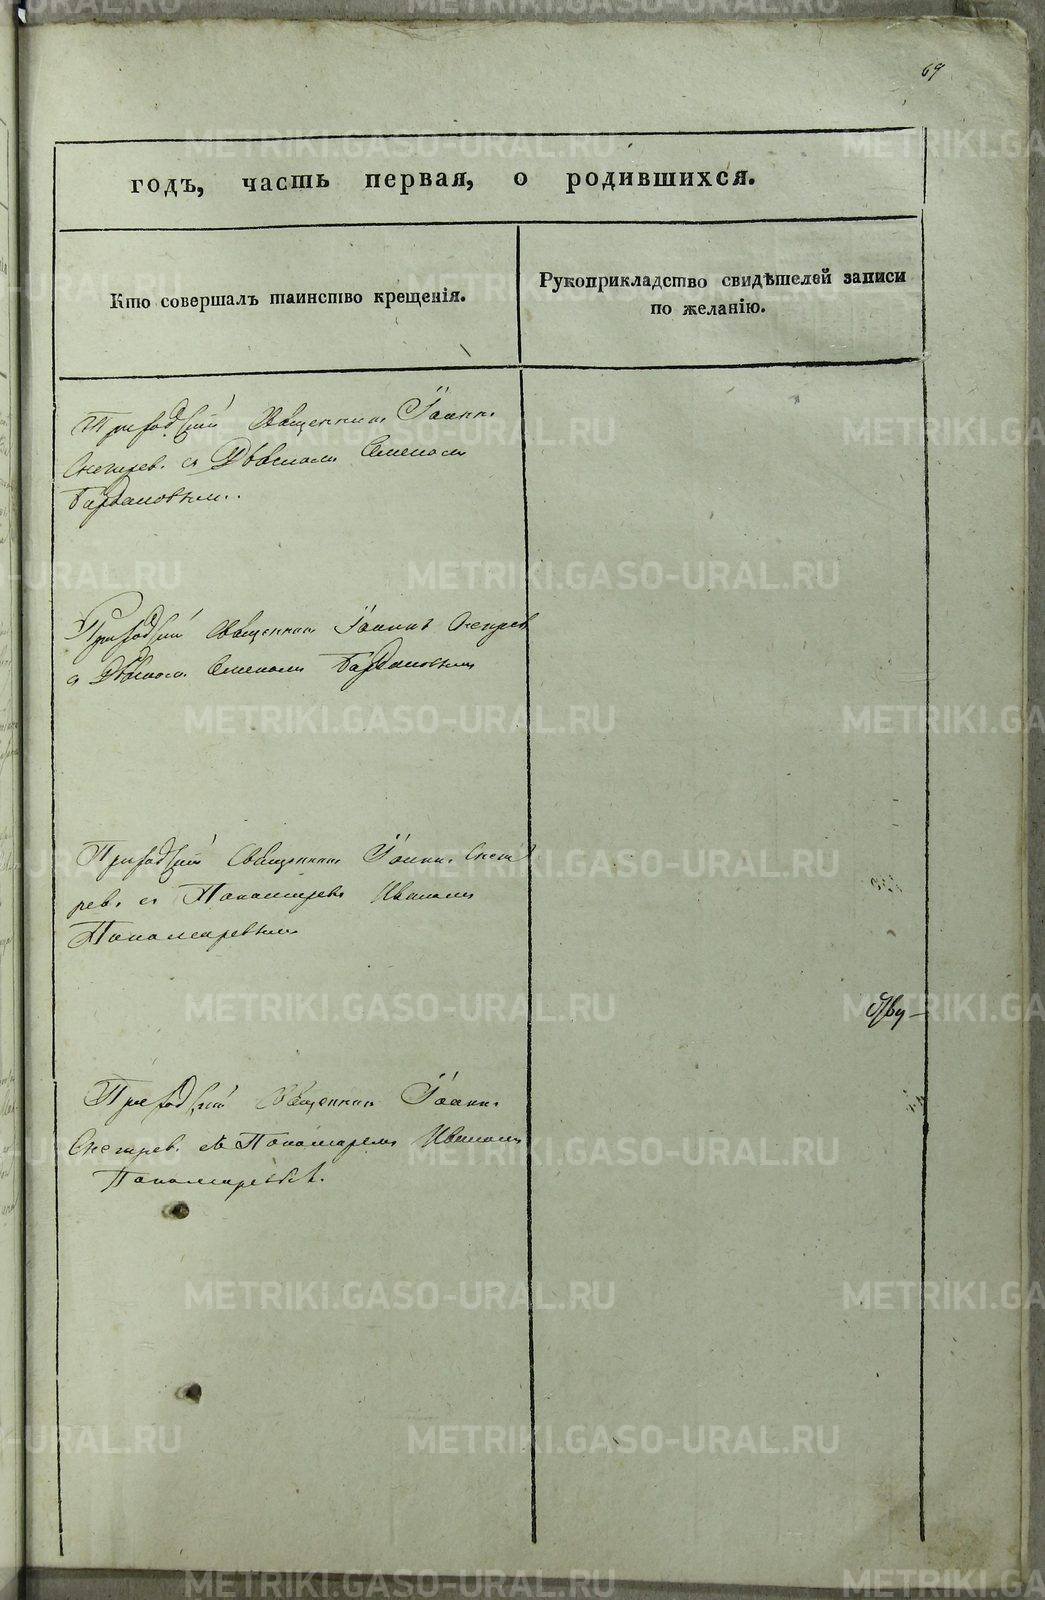 69
годъ, часть первая, о родившихся.
Кто совершалъ таинство крещенія.
Рукоприкладство свидѣтелей записи
по желанію.
Приходскій Священникъ Іоаннъ
Снегирев. съ Дьякомъ Семеномъ
Богдановым..
Приходскій Священникъ Іоаннъ Снегирев
с Дьякомъ Семеномъ Богдановымъ
Приходскій Священникъ Іоаннъ Снеги
рев. съ Пономаремъ Иваномъ
Пономаревымъ
Приходскій Священникъ Іоаннъ
Снегирев. съ Пономаремъ Иваномъ
Пономаревым.
METRIKI.GASO-URAL.RU